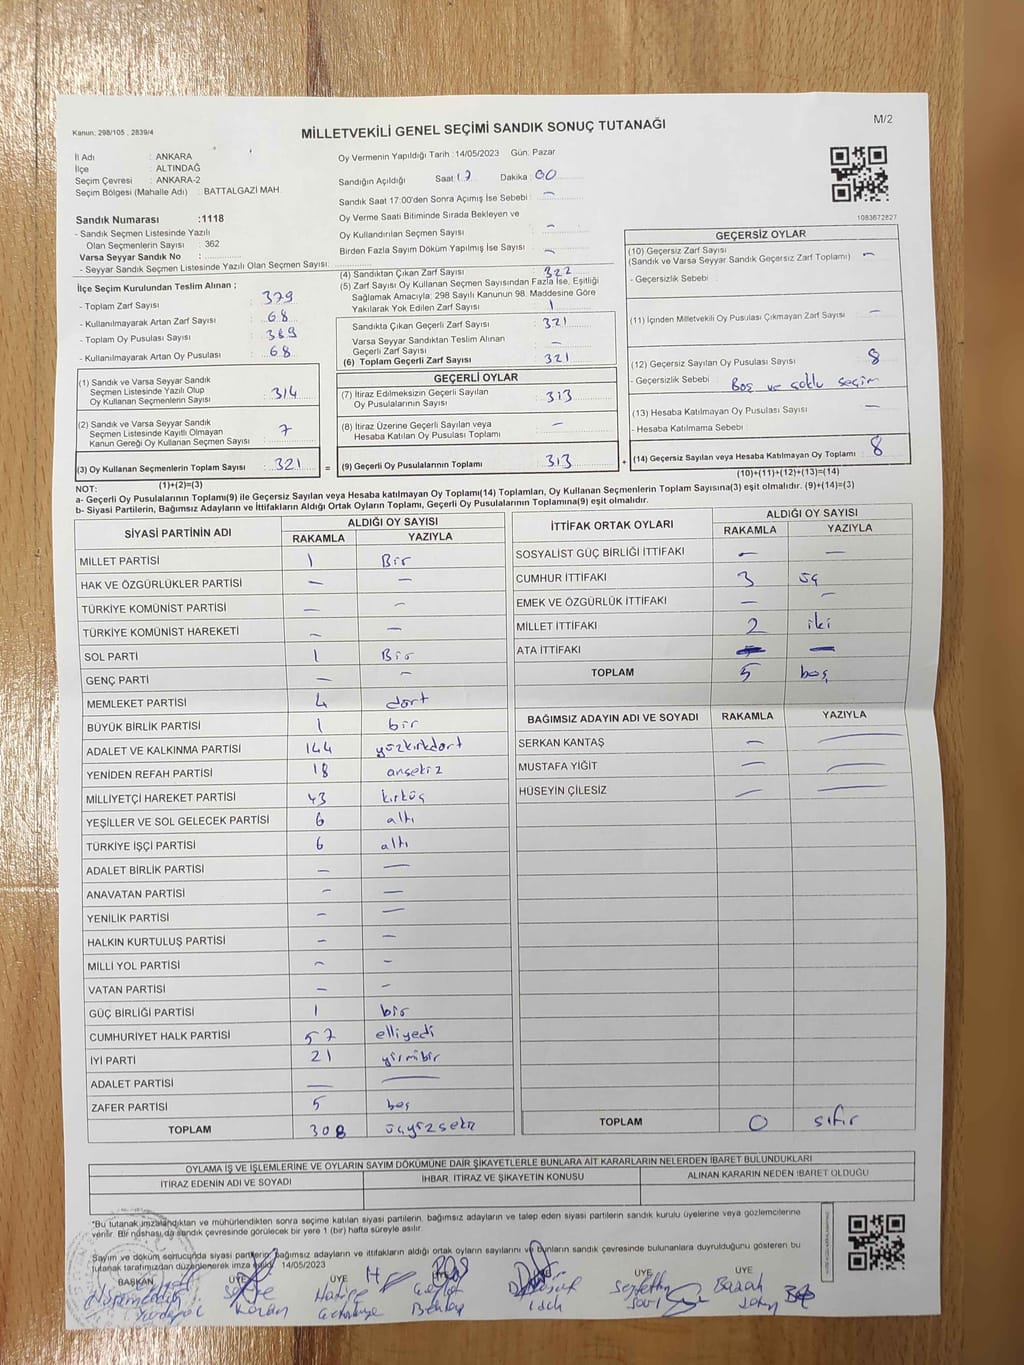 Kanun: 298/105 , 2839/4
MİLLETVEKİLİ GENEL SEÇİMİ SANDIK SONUÇ TUTANAĞI
M/2
İl Adı : ANKARA
İlçe : ALTINDAĞ
Seçim Çevresi : ANKARA-2
Seçim Bölgesi (Mahalle Adı) : BATTALGAZİ MAH.
Sandık Numarası :1118
- Sandık Seçmen Listesinde Yazılı
Olan Seçmenlerin Sayısı : 362
Varsa Seyyar Sandık No :
- Seyyar Sandık Seçmen Listesinde Yazılı Olan Seçmen Sayısı:
İlçe Seçim Kurulundan Teslim Alınan ;
- Toplam Zarf Sayısı : 379
- Kullanılmayarak Artan Zarf Sayısı : 68
- Toplam Oy Pusulası Sayısı : 389
- Kullanılmayarak Artan Oy Pusulası : 68
(1) Sandık ve Varsa Seyyar Sandık
Seçmen Listesinde Yazılı Olup
Oy Kullanan Seçmenlerin Sayısı : 314
(2) Sandık ve Varsa Seyyar Sandık
Seçmen Listesinde Kayıtlı Olmayan
Kanun Gereği Oy Kullanan Seçmen Sayısı : 7
(3) Oy Kullanan Seçmenlerin Toplam Sayısı : 321
(1)+(2)=(3)
Oy Vermenin Yapıldığı Tarih :14/05/2023 Gün: Pazar
Sandığın Açıldığı Saat:17 Dakika:00
Sandık Saat 17:00'den Sonra Açımış İse Sebebi : –
Oy Verme Saati Bitiminde Sırada Bekleyen ve
Oy Kullandırılan Seçmen Sayısı : –
Birden Fazla Sayım Döküm Yapılmış İse Sayısı : –
(4) Sandıktan Çıkan Zarf Sayısı : 322
(5) Zarf Sayısı Oy Kullanan Seçmen Sayısından Fazla İse, Eşitliği
Sağlamak Amacıyla; 298 Sayılı Kanunun 98. Maddesine Göre
Yakılarak Yok Edilen Zarf Sayısı : 1
Sandıkta Çıkan Geçerli Zarf Sayısı : 321
Varsa Seyyar Sandıktan Teslim Alınan
Geçerli Zarf Sayısı : –
(6) Toplam Geçerli Zarf Sayısı : 321
GEÇERLİ OYLAR
(7) İtiraz Edilmeksizin Geçerli Sayılan
Oy Pusulalarının Sayısı : 313
(8) İtiraz Üzerine Geçerli Sayılan veya
Hesaba Katılan Oy Pusulası Toplamı : –
= (9) Geçerli Oy Pusulalarının Toplamı : 313 +
1083672827
GEÇERSİZ OYLAR
(10) Geçersiz Zarf Sayısı
(Sandık ve Varsa Seyyar Sandık Geçersiz Zarf Toplamı) : –
- Geçersizlik Sebebi :
(11) İçinden Milletvekili Oy Pusulası Çıkmayan Zarf Sayısı : –
(12) Geçersiz Sayılan Oy Pusulası Sayısı : 8
- Geçersizlik Sebebi : Boş ve çoklu seçim
(13) Hesaba Katılmayan Oy Pusulası Sayısı : –
- Hesaba Katılmama Sebebi :
(14) Geçersiz Sayılan veya Hesaba Katılmayan Oy Toplamı : 8
(10)+(11)+(12)+(13)=(14)
NOT:
a- Geçerli Oy Pusulalarının Toplamı(9) ile Geçersiz Sayılan veya Hesaba katılmayan Oy Toplamı(14) Toplamları, Oy Kullanan Seçmenlerin Toplam Sayısına(3) eşit olmalıdır. (9)+(14)=(3)
b- Siyasi Partilerin, Bağımsız Adayların ve İttifakların Aldığı Ortak Oyların Toplamı, Geçerli Oy Pusulalarının Toplamına(9) eşit olmalıdır.
SİYASİ PARTİNİN ADI ALDIĞI OY SAYISI
RAKAMLA YAZIYLA
MİLLET PARTİSİ 1 Bir
HAK VE ÖZGÜRLÜKLER PARTİSİ – –
TÜRKİYE KOMÜNİST PARTİSİ – –
TÜRKİYE KOMÜNİST HAREKETİ – –
SOL PARTİ 1 Bir
GENÇ PARTİ – –
MEMLEKET PARTİSİ 4 dört
BÜYÜK BİRLİK PARTİSİ 1 bir
ADALET VE KALKINMA PARTİSİ 144 yüzkırkdört
YENİDEN REFAH PARTİSİ 18 onsekiz
MİLLİYETÇİ HAREKET PARTİSİ 43 kırküç
YEŞİLLER VE SOL GELECEK PARTİSİ 6 altı
TÜRKİYE İŞÇİ PARTİSİ 6 altı
ADALET BİRLİK PARTİSİ – –
ANAVATAN PARTİSİ – –
YENİLİK PARTİSİ – –
HALKIN KURTULUŞ PARTİSİ – –
MİLLİ YOL PARTİSİ – –
VATAN PARTİSİ – –
GÜÇ BİRLİĞİ PARTİSİ 1 bir
CUMHURİYET HALK PARTİSİ 57 elliyedi
İYİ PARTİ 21 yirmibir
ADALET PARTİSİ – –
ZAFER PARTİSİ 5 beş
TOPLAM 308 üçyüzsekiz
İTTİFAK ORTAK OYLARI ALDIĞI OY SAYISI
RAKAMLA YAZIYLA
SOSYALİST GÜÇ BİRLİĞİ İTTİFAKI – –
CUMHUR İTTİFAKI 3 üç
EMEK VE ÖZGÜRLÜK İTTİFAKI – –
MİLLET İTTİFAKI 2 iki
ATA İTTİFAKI – –
TOPLAM 5 beş
BAĞIMSIZ ADAYIN ADI VE SOYADI RAKAMLA YAZIYLA
SERKAN KANTAŞ – –
MUSTAFA YİĞİT – –
HÜSEYİN ÇİLESİZ – –
TOPLAM 0 sıfır
OYLAMA İŞ VE İŞLEMLERİNE VE OYLARIN SAYIM DÖKÜMÜNE DAİR ŞİKAYETLERLE BUNLARA AİT KARARLARIN NELERDEN İBARET BULUNDUKLARI
İTİRAZ EDENİN ADI VE SOYADI İHBAR, İTİRAZ VE ŞİKAYETİN KONUSU ALINAN KARARIN NEDEN İBARET OLDUĞU
"Bu tutanak imzalandıktan ve mühürlendikten sonra seçime katılan siyasi partilerin, bağımsız adayların ve talep eden siyasi partilerin sandık kurulu üyelerine veya gözlemcilerine
verilir. Bir nüshası da sandık çevresinde görülecek bir yere 1 (bir) hafta süreyle asılır.
Sayım ve döküm sonucunda siyasi partilerin, bağımsız adayların ve ittifakların aldığı ortak oyların sayılarını ve bunların sandık çevresinde bulunanlara duyrulduğunu gösteren bu
tutanak tarafımızdan düzenlenerek imza edildi. 14/05/2023
BAŞKAN ÜYE ÜYE ÜYE ÜYE
Hatice